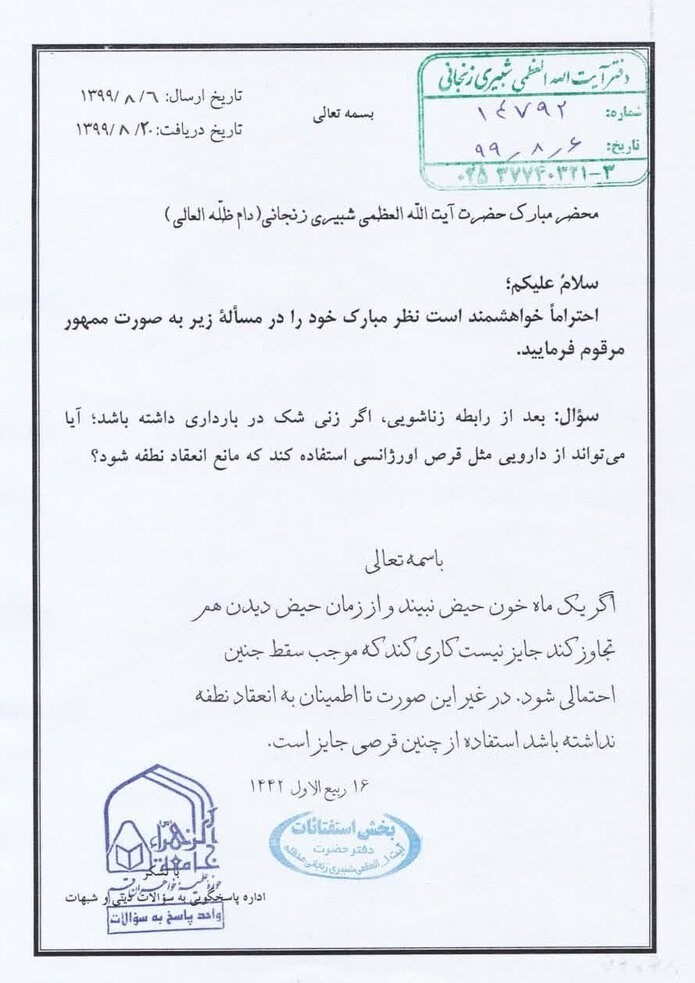 دفتر آیت الله العظمی شبیری زنجانی
شماره: ۱۴۷۹۲
تاریخ: ۹۹٫۸٫۶
۰۲۵ ۳۷۷۴۰۳۲۱-۳
بسمه تعالی
تاریخ ارسال: ۱۳۹۹/۸/۶
تاریخ دریافت: ۱۳۹۹/۸/۲۰
محضر مبارک حضرت آیت اللّه العظمی شبیری زنجانی(دام ظلّه العالی)
سلامُ علیکم؛
احتراماً خواهشمند است نظر مبارک خود را در مسألهٔ زیر به صورت ممهور
مرقوم فرمایید.
سؤال: بعد از رابطه زناشویی، اگر زنی شک در بارداری داشته باشد؛ آیا
می‌تواند از دارویی مثل قرص اورژانسی استفاده کند که مانع انعقاد نطفه شود؟
باسمه تعالی
اگر یک ماه خون حیض نبیند و از زمان حیض دیدن هم
تجاوز کند جایز نیست کاری کند که موجب سقط جنین
احتمالی شود. در غیر این صورت تا اطمینان به انعقاد نطفه
نداشته باشد استفاده از چنین قرصی جایز است.
۱۶ ربیع الاول ۱۴۴۲
بخش استفتائات
دفتر حضرت
آیت الله العظمی شبیری زنجانی مدظله
جامعة الزهراء
با تشکر
حوزه علمیه خواهران قم
اداره پاسخگویی به سؤالات دینی و شبهات
واحد پاسخ به سؤالات